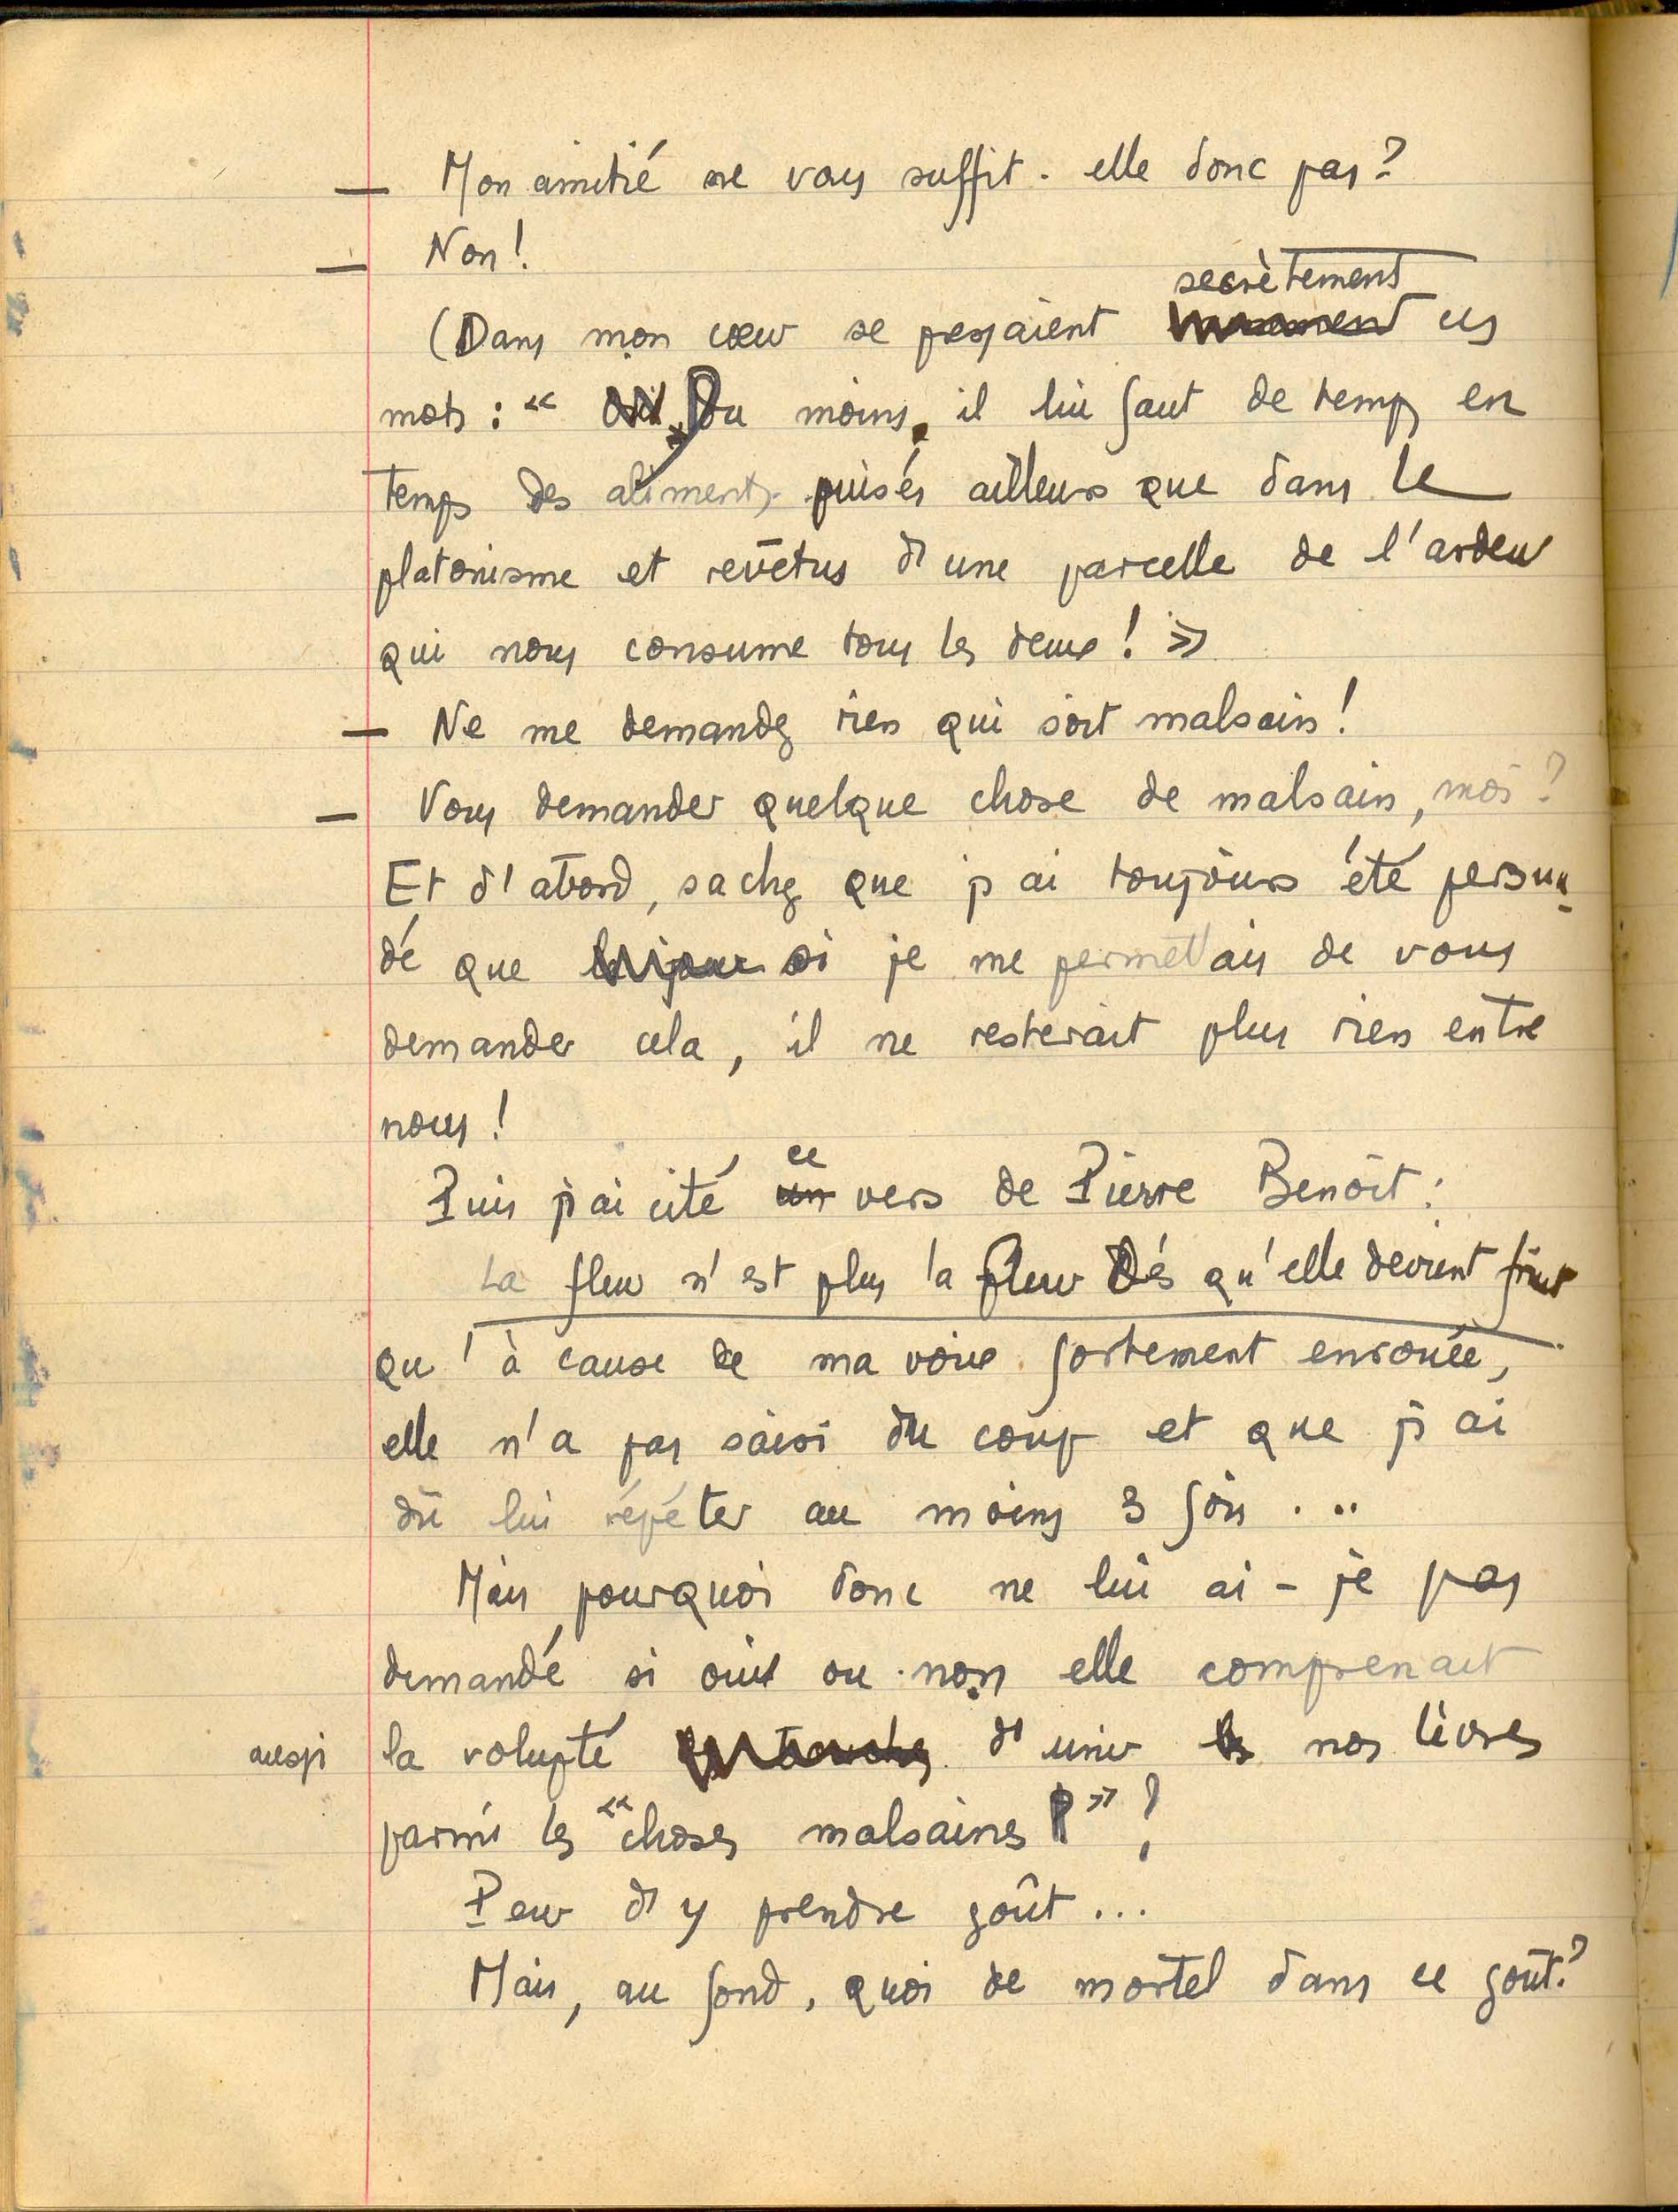 — Mon amitié ne vous suffit-elle donc pas?
— Non!
secrètement
(Dans mon cœur se pressaient ces
mots: « Du moins, il lui faut de temps en
temps des aliments puisés ailleurs que dans le
platonisme et revêtus d'une parcelle de l'ardeur
qui nous consume tous les deux! »
— Ne me demandez rien qui soit malsain!
— Vous demander quelque chose de malsain, moi?
Et d'abord, sachez que j'ai toujours été persua-
dé que si je me permettais de vous
demander cela, il ne resterait plus rien entre
nous!
ce
Puis j'ai cité un vers de Pierre Benoît:
La fleur n'est plus la fleur dès qu'elle devient fruit
qu'à cause de ma voix fortement enrouée,
elle n'a pas saisi du coup et que j'ai
dû lui répéter au moins 3 fois...
Mais pourquoi donc ne lui ai-je pas
demandé si oui ou non elle comprenait
aussi la volupté d'unir nos lèvres
parmi les "choses malsaines" ?
Peur d'y prendre goût...
Mais, au fond, quoi de mortel dans ce goût?